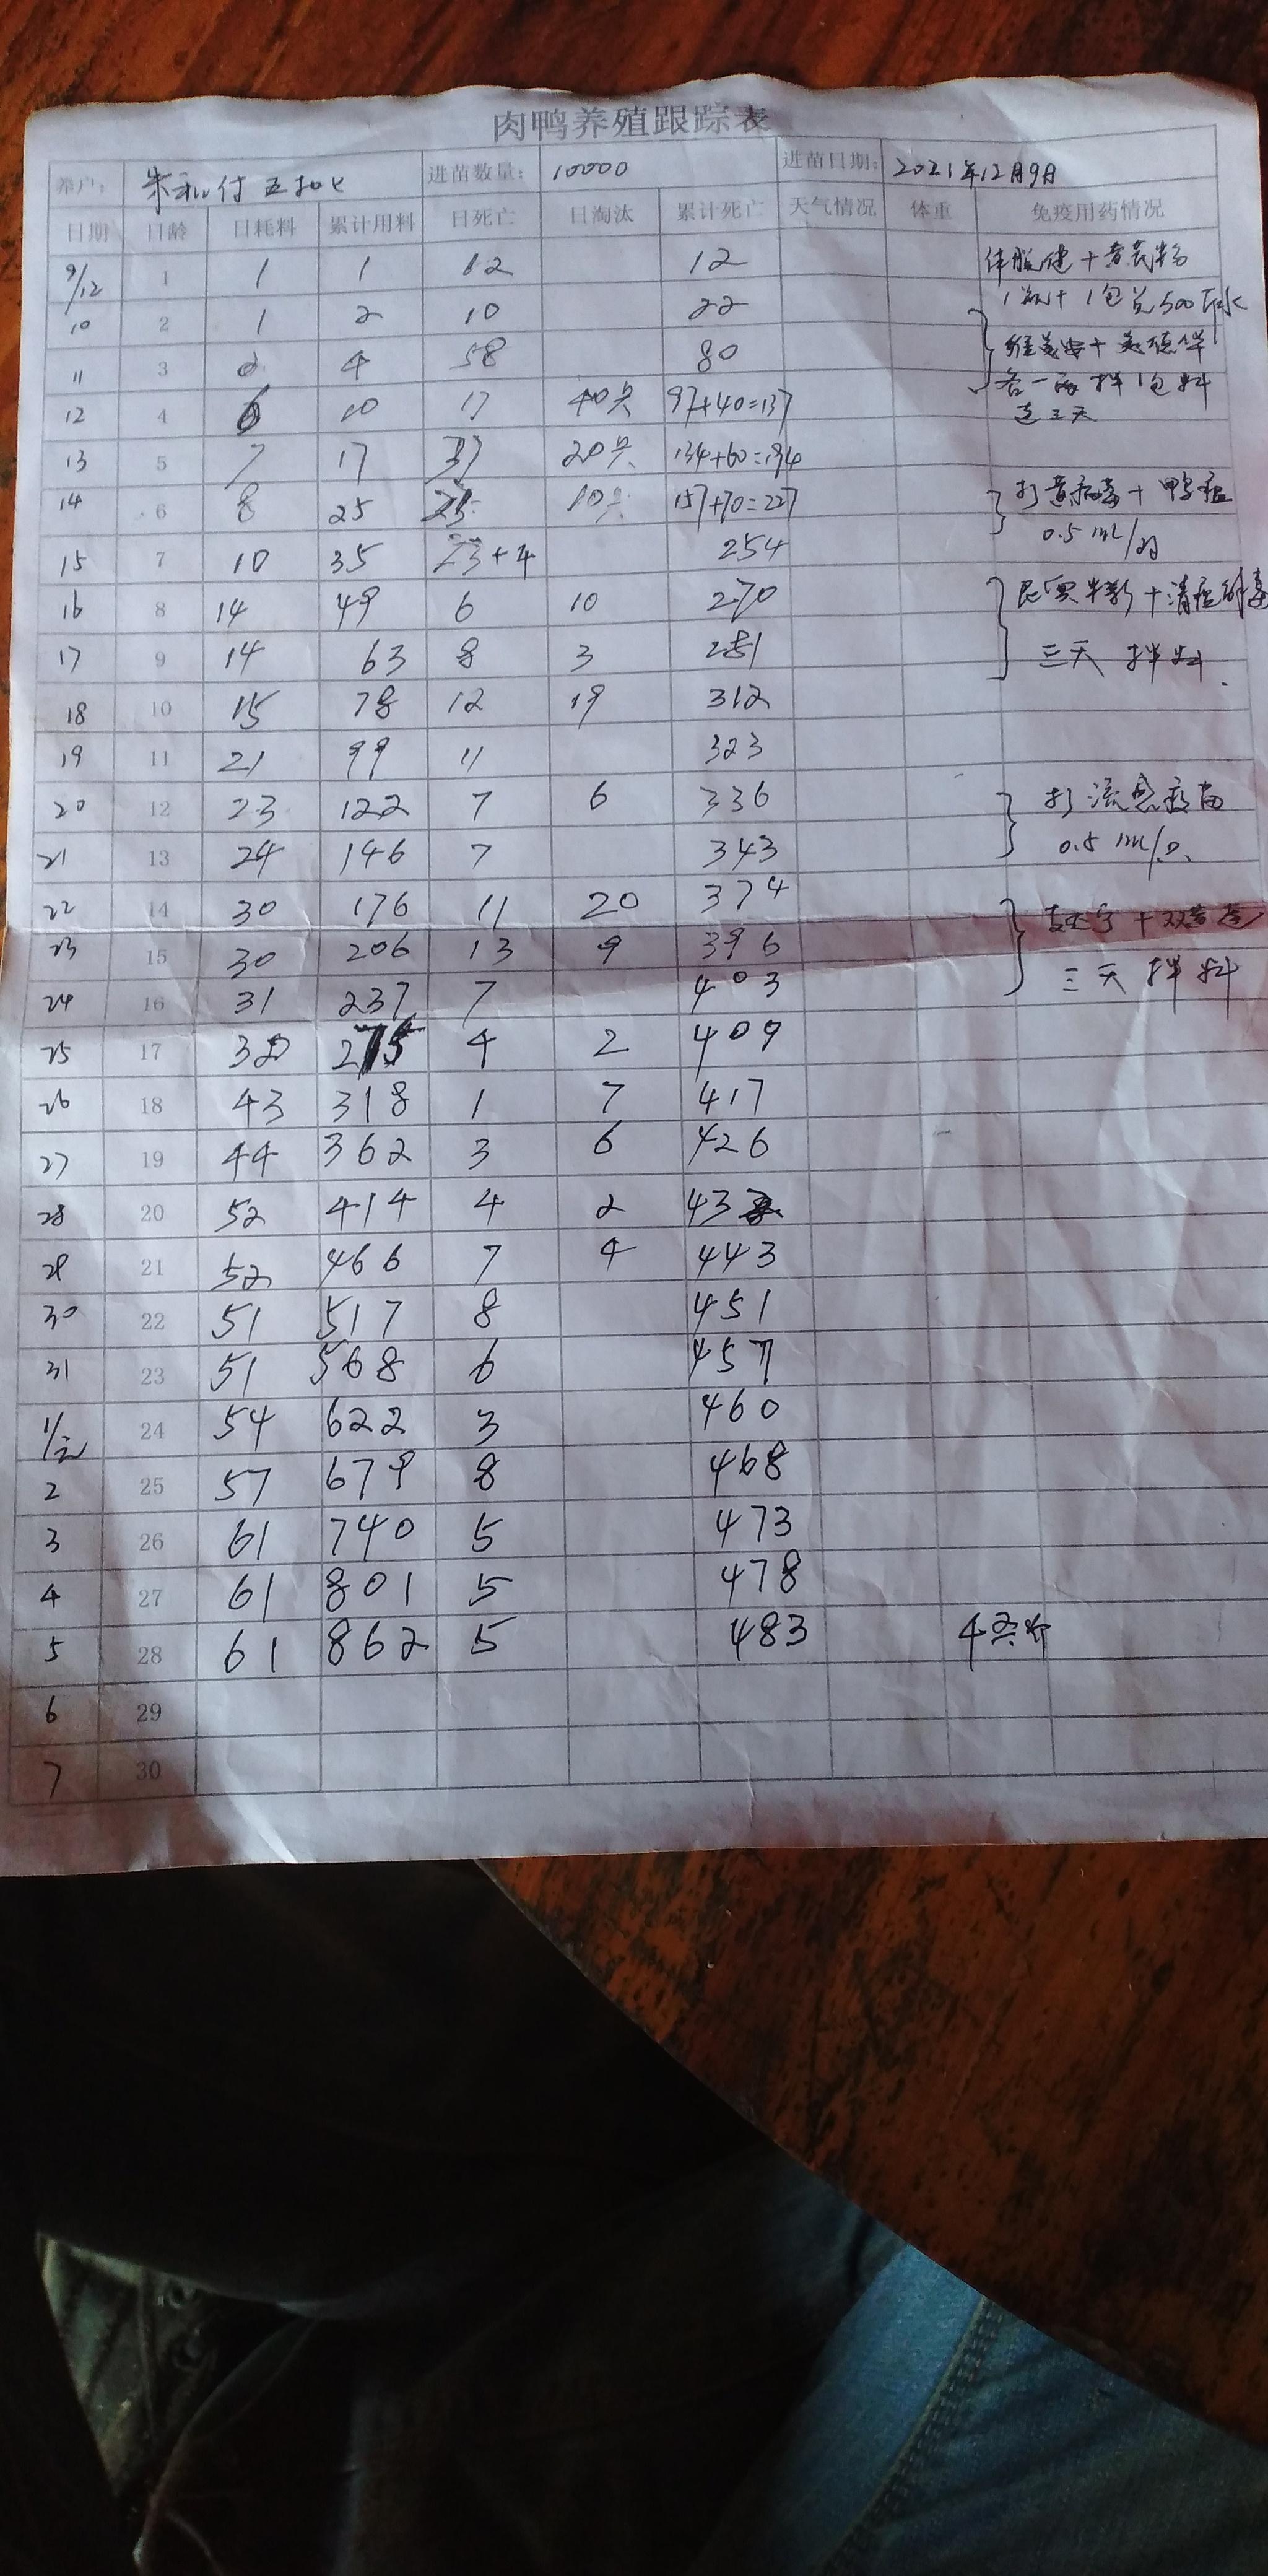 肉鸭养殖跟踪表
养户： 进苗数量： 10000 进苗日期： 2021年12月9日
日期 日龄 日耗料 累计用料 日死亡 日淘汰 累计死亡 天气情况 体重 免疫用药情况
9/12 1 1 1 12 12
1包兑500斤水
10 2 1 2 10 22
11 3 2 4 58 80
12 4 6 10 17 40只 97+40=137 拌1包料
连三天
13 5 7 17 37 20只 134+60=194
14 6 8 25 23 10只 157+70=227
0.5ml/羽
15 7 10 35 23+4 254
16 8 14 49 6 10 270
17 9 14 63 8 3 281 三天拌料
18 10 15 78 12 19 312
19 11 21 99 11 323
20 12 23 122 7 6 336 打流感疫苗
21 13 24 146 7 343 0.5ml/
22 14 30 176 11 20 374
23 15 30 206 13 9 396
24 16 31 237 7 403 三天拌料
25 17 275 4 2 409
26 18 43 318 1 7 417
27 19 44 362 3 6 426
28 20 52 414 4 2
29 21 52 466 7 4 443
30 22 51 517 8 451
31 23 51 568 6 457
1/元 24 54 622 3 460
2 25 57 679 8 468
3 26 61 740 5 473
4 27 61 801 5 478
5 28 61 862 5 483
6 29
7 30